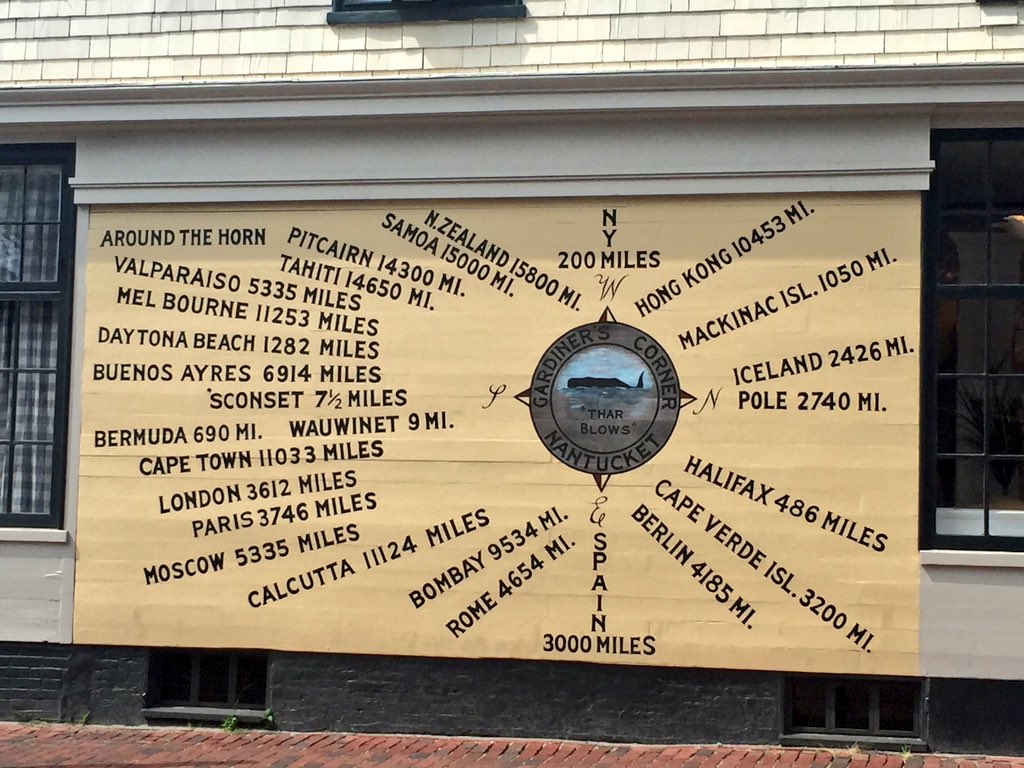 AROUND THE HORN
VALPARAISO 5335 MILES
MELBOURNE 11253 MILES
DAYTONA BEACH 1282 MILES
BUENOS AYRES 6914 MILES
'SCONSET 7½ MILES
BERMUDA 690 MI.
WAUWINET 9 MI.
CAPE TOWN 11033 MILES
LONDON 3612 MILES
PARIS 3746 MILES
MOSCOW 5335 MILES
CALCUTTA 11124 MILES
BOMBAY 9534 MI.
ROME 4654 MI.
PITCAIRN 14300 MI.
TAHITI 14650 MI.
N. ZEALAND 15800 MI.
SAMOA 15000 MI.
NY
200 MILES
W
S
N
E
GARDINER'S CORNER
"THAR
BLOWS"
NANTUCKET
HONG KONG 10453 MI.
MACKINAC ISL. 1050 MI.
ICELAND 2426 MI.
POLE 2740 MI.
HALIFAX 486 MILES
CAPE VERDE ISL. 3200 MI.
BERLIN 4185 MI.
SPAIN
3000 MILES